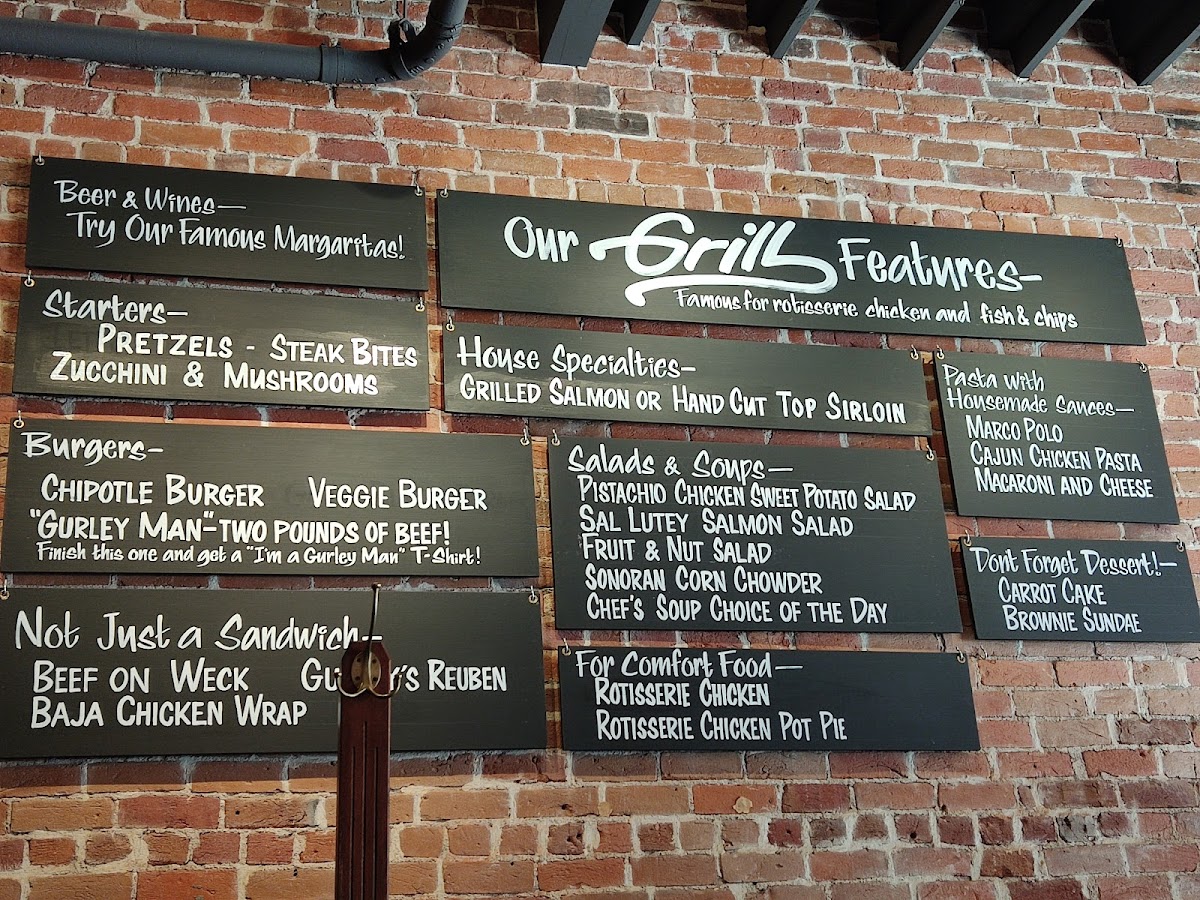 Beer & Wines—
Try Our Famous Margaritas!
Starters—
PRETZELS - STEAK BITES
ZUCCHINI & MUSHROOMS
Burgers-
CHIPOTLE BURGER VEGGIE BURGER
"GURLEY MAN"-TWO POUNDS OF BEEF!
Finish this one and get a "I'm a Gurley Man" T-Shirt!
Not Just a Sandwich—
BEEF ON WECK REUBEN
BAJA CHICKEN WRAP
Our Grill Features—
Famous for rotisserie chicken and fish & chips
House Specialties—
GRILLED SALMON OR HAND CUT TOP SIRLOIN
Salads & Soups—
PISTACHIO CHICKEN SWEET POTATO SALAD
SAL LUTEY SALMON SALAD
FRUIT & NUT SALAD
SONORAN CORN CHOWDER
CHEF'S SOUP CHOICE OF THE DAY
For Comfort Food—
ROTISSERIE CHICKEN
ROTISSERIE CHICKEN POT PIE
Pasta with
Housemade Sauces—
MARCO POLO
CAJUN CHICKEN PASTA
MACARONI AND CHEESE
Dont Forget Dessert!—
CARROT CAKE
BROWNIE SUNDAE